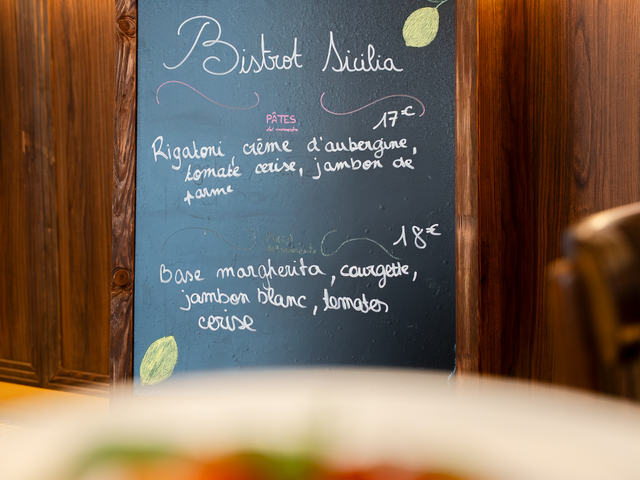 Bistrot Sicilia
PÂTES
17€
Rigatoni, crème d'aubergine,
tomate cerise, jambon de
parme
18€
Base margherita, courgette,
jambon blanc, tomates
cerise